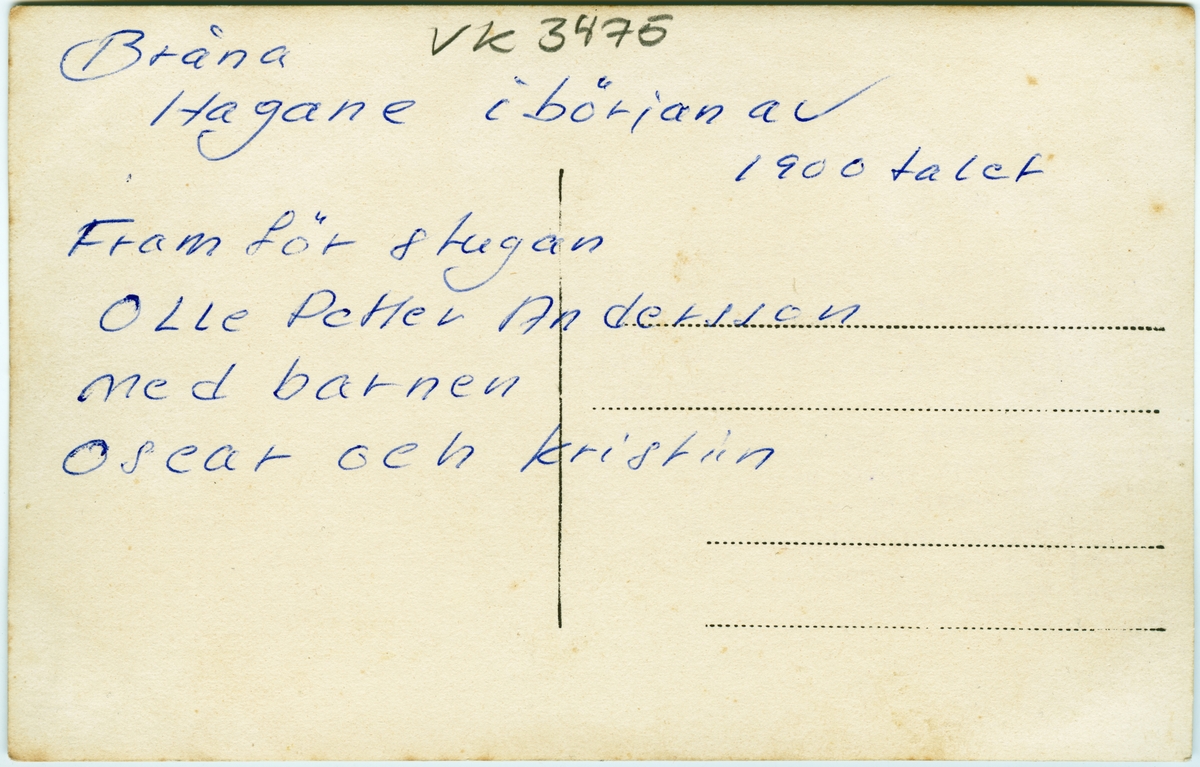 VK 3475
Bråna
Hagane i början av
1900 talet
Framför stugan
Olle Petter Andersson
med barnen
Oscar och Kristin